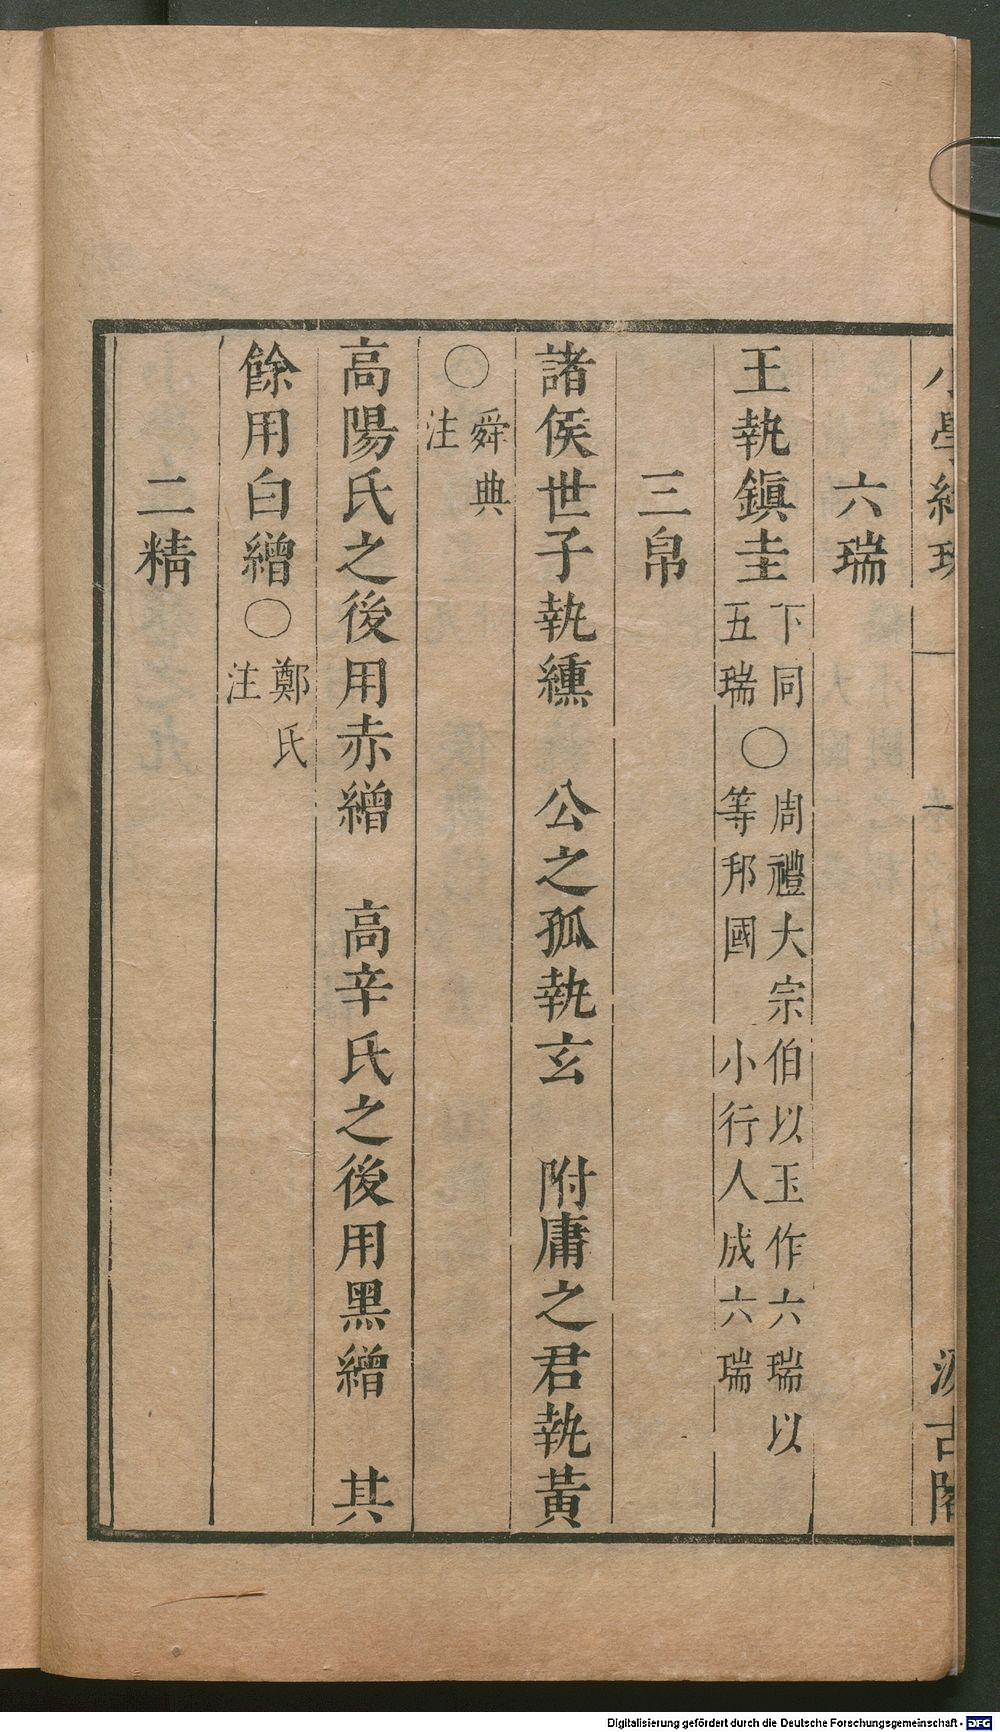 小學紺珠 一 汲古閣
六瑞
王執鎭圭下同五瑞〇周禮大宗伯以玉作六瑞以等邦國 小行人成六瑞
三帛
諸侯世子執纁 公之孤執玄 附庸之君執黃
〇舜典注
高陽氏之後用赤繒 高辛氏之後用黑繒 其
餘用白繒〇鄭氏注
二精
Digitalisierung gefördert durch die Deutsche Forschungsgemeinschaft - DFG